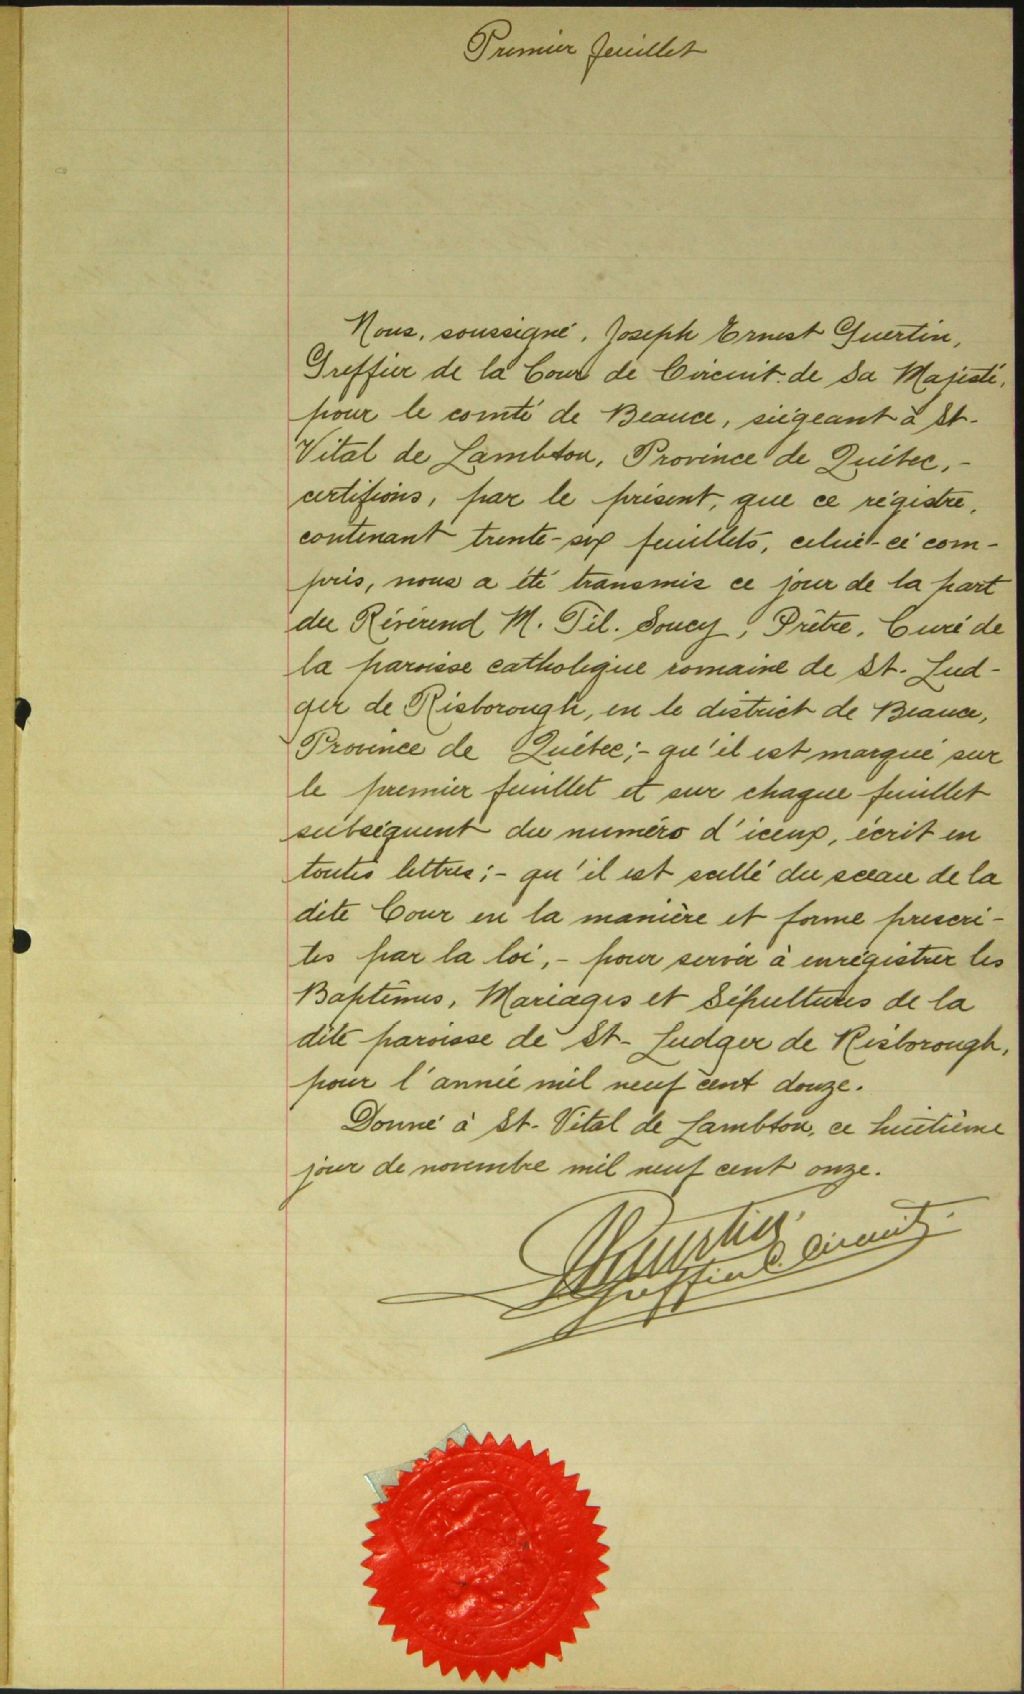 Premier feuillet
Nous, soussigné, Joseph Ernest Guertin,
Greffier de la Cour de Circuit de Sa Majesté,
pour le comté de Beauce, siégeant à St-
Vital de Lambton, Province de Québec, -
certifions, par le présent, que ce régistre,
contenant trente-six feuillets, celui-ci com-
pris, nous a été transmis ce jour de la part
du Révérend M. Tél. Soucy, Prêtre, Curé de
la paroisse catholique romaine de St. Lud-
ger de Risborough, en le district de Beauce,
Province de Québec; - qu'il est marqué sur
le premier feuillet et sur chaque feuillet
subséquent du numéro d'iceux, écrit en
toutes lettres; - qu'il est scellé du sceau de la
dite Cour en la manière et forme prescri-
tes par la loi, - pour servir à enrégistrer les
Baptêmes, Mariages et Sépultures de la
dite paroisse de St- Ludger de Risborough,
pour l'année mil neuf cent douze.
Donné à St- Vital de Lambton, ce huitième
jour de novembre mil neuf cent onze.
Guertin
Greffier C. Circuit.